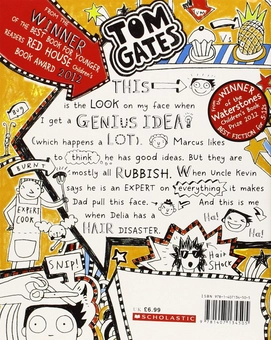 FROM THE
WINNER
OF THE BEST BOOK FOR YOUNGER
READERS RED HOUSE Children's
BOOK AWARD 2012
TOM
GATES
From the
WINNER
of the
Waterstones
Children's Book
Prize 2012
BEST FICTION for 5-12
THIS
is the LOOK on my face when
I get a GENIUS IDEA!
(which happens a LOT). Marcus likes
to think he has good ideas. But they are
mostly all RUBBISH. When Uncle Kevin
says he is an EXPERT on everything it makes
Dad pull this face. And this is me
when Delia has a
HAIR DISASTER.
BURNT
EXPERT
COOK
SNIP!
Ha!
Ha!
Hair
SHOCK
£6.99
SCHOLASTIC